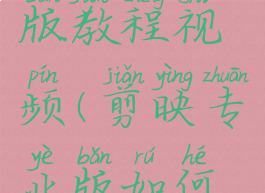 版教程视
pín jiǎn yìng zhuān
频(剪映专
yè bǎn rú hé
业版如何